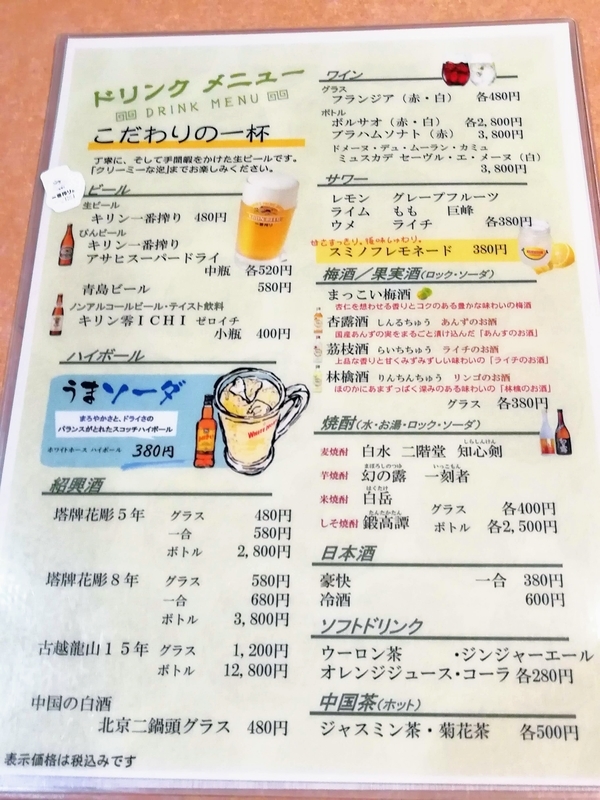 ドリンク メニュー
DRINK MENU
こだわりの一杯
丁寧に、そして手間暇をかけた生ビールです。
「クリーミーな泡」までお楽しみください。
一番搾り
ビール
生ビール
キリン一番搾り 480円
びんビール
キリン一番搾り
アサヒスーパードライ
中瓶 各520円
青島ビール 580円
ノンアルコールビール・テイスト飲料
キリン零ICHI ゼロイチ
小瓶 400円
ハイボール
うまソーダ
まろやかさと、ドライさの
バランスがとれたスコッチハイボール
ホワイトホース ハイボール 380円
紹興酒
塔牌花彫5年 グラス 480円
一合 580円
ボトル 2,800円
塔牌花彫8年 グラス 580円
一合 680円
ボトル 3,800円
古越龍山15年 グラス 1,200円
ボトル 12,800円
中国の白酒
北京二鍋頭グラス 480円
表示価格は税込みです
ワイン
グラス
フランジア（赤・白） 各480円
ボトル
ボルサオ（赤・白） 各2,800円
ブラハムソナト（赤） 3,800円
ドメーヌ・デュ・ムーラン・カミュ
ミュスカデ セーヴル・エ・メーヌ（白）
3,800円
サワー
レモン グレープフルーツ
ライム もも 巨峰
ウメ ライチ 各380円
甘さすっきり。後味しゅわり。
スミノフレモネード 380円
梅酒／果実酒（ロック・ソーダ）
まっこい梅酒
杏仁を想わせる香りとコクのある豊かな味わいの梅酒
杏露酒 しんるちゅう あんずのお酒
国産あんずの実をまるごと漬け込んだ「あんずのお酒」
茘枝酒 らいちちゅう ライチのお酒
上品な香りと甘くみずみずしい味わいの「ライチのお酒」
林檎酒 りんちんちゅう リンゴのお酒
ほのかにあまずっぱく深みのある味わいの「林檎のお酒」
グラス 各380円
焼酎（水・お湯・ロック・ソーダ）
しらしんけん
麦焼酎 白水 二階堂 知心剣
まぼろしのつゆ いっこもん
芋焼酎 幻の露 一刻者
はくたけ
米焼酎 白岳 グラス 各400円
たんたかたん
しそ焼酎 鍛高譚 ボトル 各2,500円
日本酒
豪快 一合 380円
冷酒 600円
ソフトドリンク
ウーロン茶 ・ジンジャーエール
オレンジジュース・コーラ 各280円
中国茶（ホット）
ジャスミン茶・菊花茶 各500円